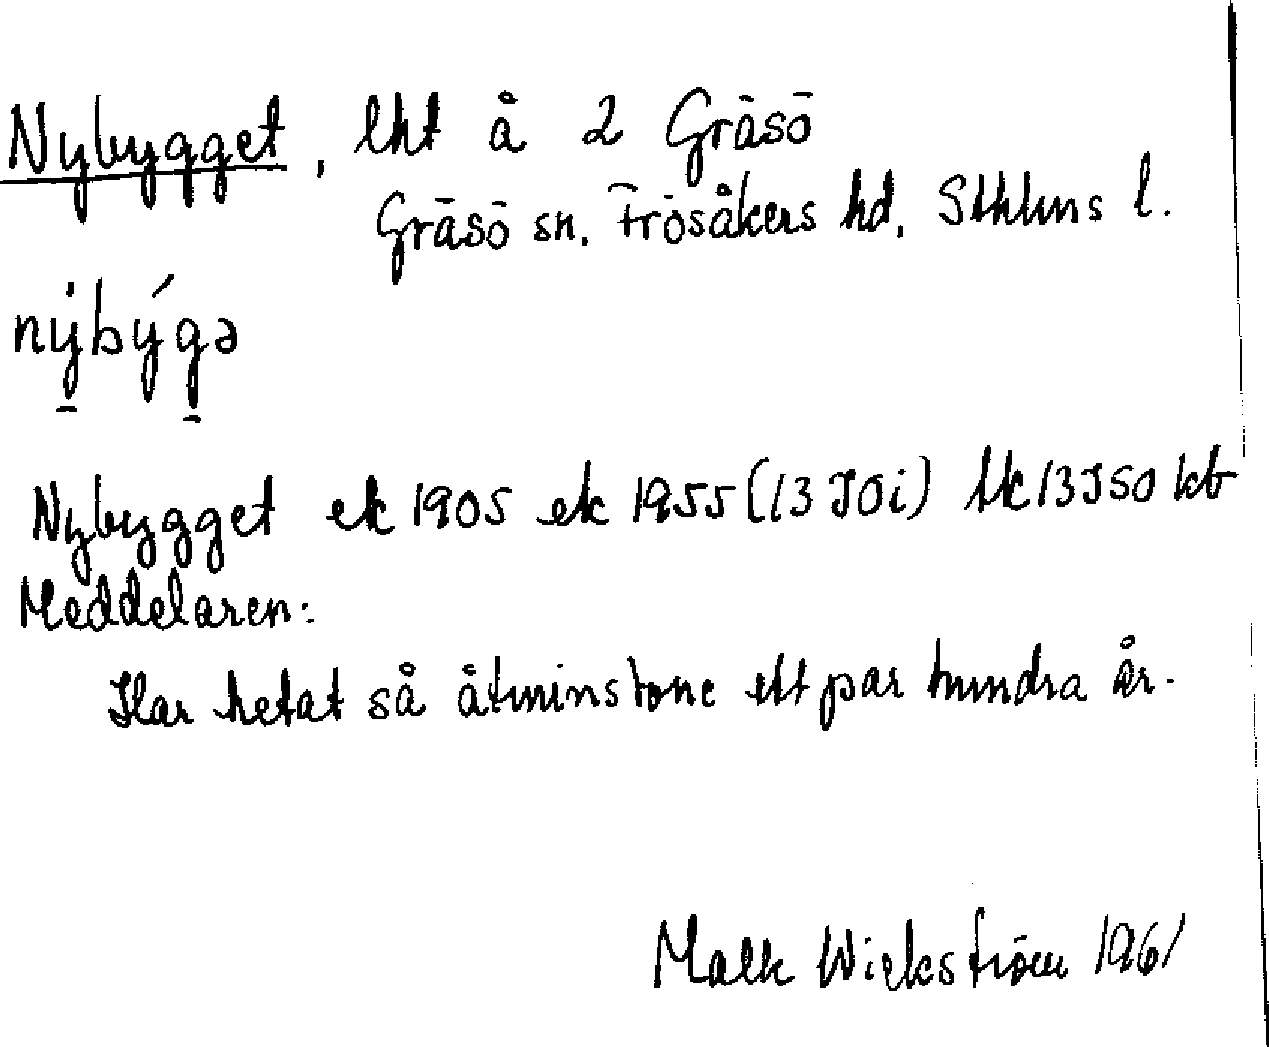 Nybygget, lht å 2 Gräsö
Gräsö sn. Frösåkers hd, Sthlms l.
nýbýgə
Nybygget ek 1905 ek 1955 (13 J0i) Uk 13 J50 kb
Meddelaren:
Har hetat så åtminstone ett par hundra år.
Wickström 1961